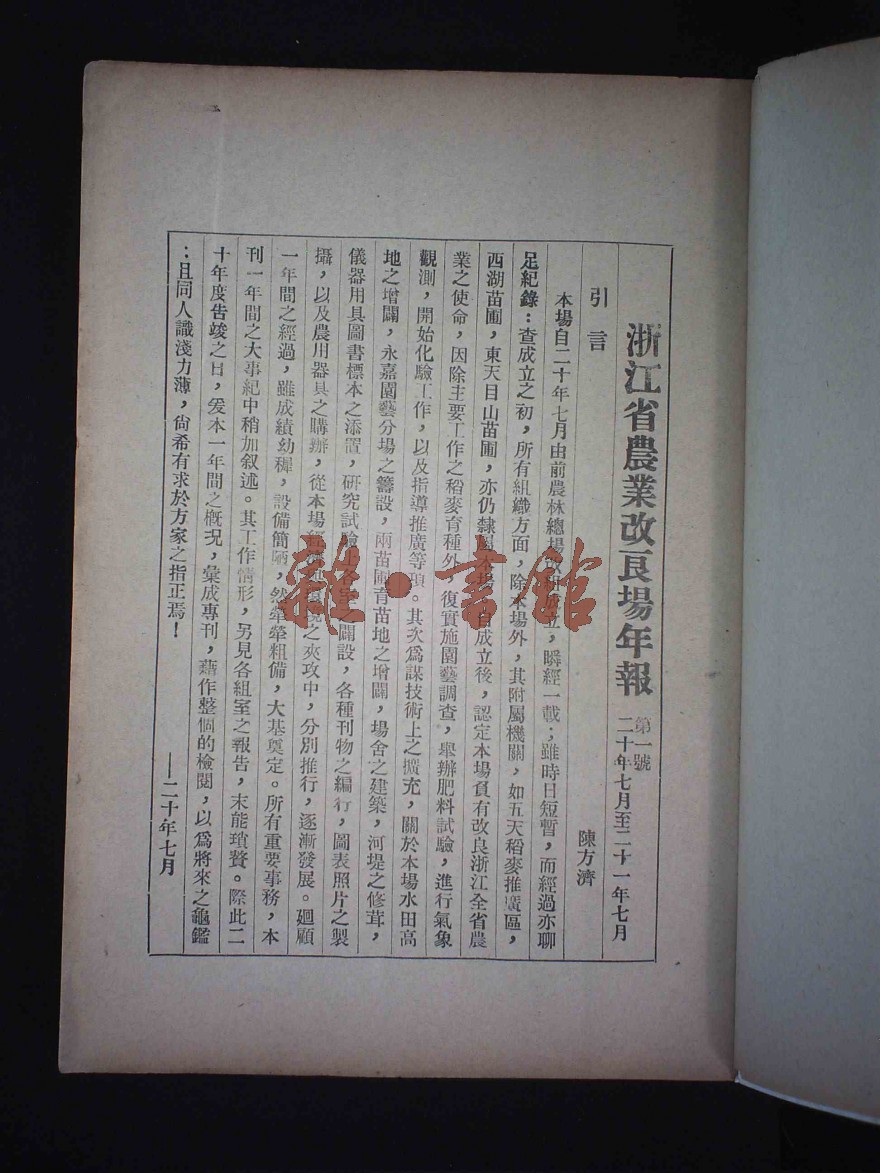 浙江省農業改良場年報
第一號
二十年七月至二十一年七月
引言
陳方濟
本場自二十年七月由前農林總場改組成立，瞬經一載；雖時日短暫，而經過亦聊
足紀錄：查成立之初，所有組織方面，除本場外，其附屬機關，如五天稻麥推廣區，
西湖苗圃，東天目山苗圃，亦仍隸屬本場。自成立後，認定本場負有改良浙江全省農
業之使命，因除主要工作之稻麥育種外，復實施園藝調查，舉辦肥料試驗，進行氣象
觀測，開始化驗工作，以及指導推廣等項。其次為謀技術上之擴充，關於本場水田高
地之增闢，永嘉園藝分場之籌設，兩苗圃育苗地之增闢，場舍之建築，河堤之修葺，
儀器用具圖書標本之添置，研究試驗上各室之闢設，各種刊物之編行，圖表照片之製
攝，以及農用器具之購辦，從本場經環境之夾攻中，分別推行，逐漸發展。廻顧
一年間之經過，雖成績幼穉，設備簡陋，然犖犖粗備，大基奠定。所有重要事務，本
刊一年間之大事紀中稍加叙述。其工作情形，另見各組室之報告，末能瑣贅。際此二
十年度告竣之日，爰本一年間之概況，彙成專刊，藉作整個的檢閱，以為將來之龜鑑
：且同人識淺力薄，尙希有求於方家之指正焉！
—二十年七月
雜·書館